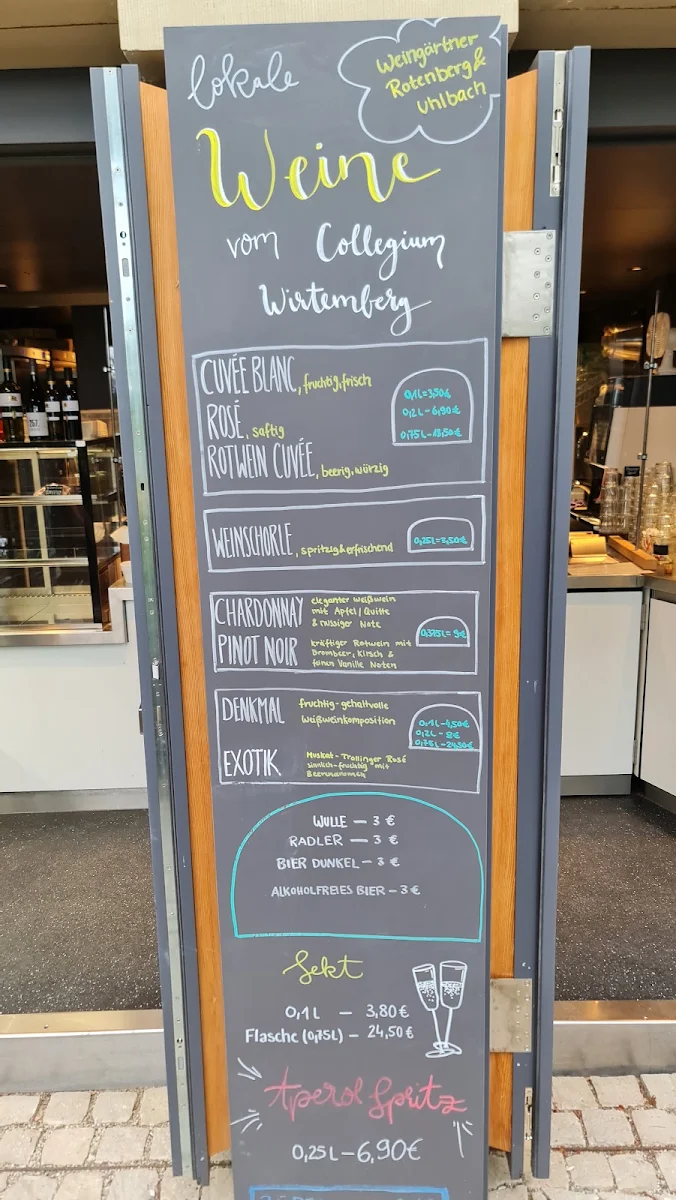 lokale
Weingärtner
Rotenberg &
Uhlbach
Weine
vom Collegium
Wirtemberg
CUVÉE BLANC, fruchtig, frisch
ROSÉ, saftig
ROTWEIN CUVÉE, beerig, würzig
0,1L=3,50€
0,2L-6,90€
0,75L-18,50€
WEINSCHORLE, spritzig & erfrischend
0,25L=3,50€
CHARDONNAY eleganter Weißwein
mit Apfel/Quitte
& nussiger Note
PINOT NOIR kräftiger Rotwein mit
Brombeer, Kirsch &
feinen Vanille Noten
0,375L=9€
DENKMAL fruchtig-gehaltvolle
Weißweinkomposition
EXOTIK Muskat-Trollinger Rosé
sinnlich-fruchtig mit
Beerenaromen
0,1L-4,50€
0,2L-8€
0,75L-24,50€
WULLE — 3 €
RADLER — 3 €
BIER DUNKEL — 3 €
ALKOHOLFREIES BIER - 3 €
Sekt
0,1L — 3,80€
Flasche (0,75L) - 24,50€
Aperol Spritz
0,25L-6,90€